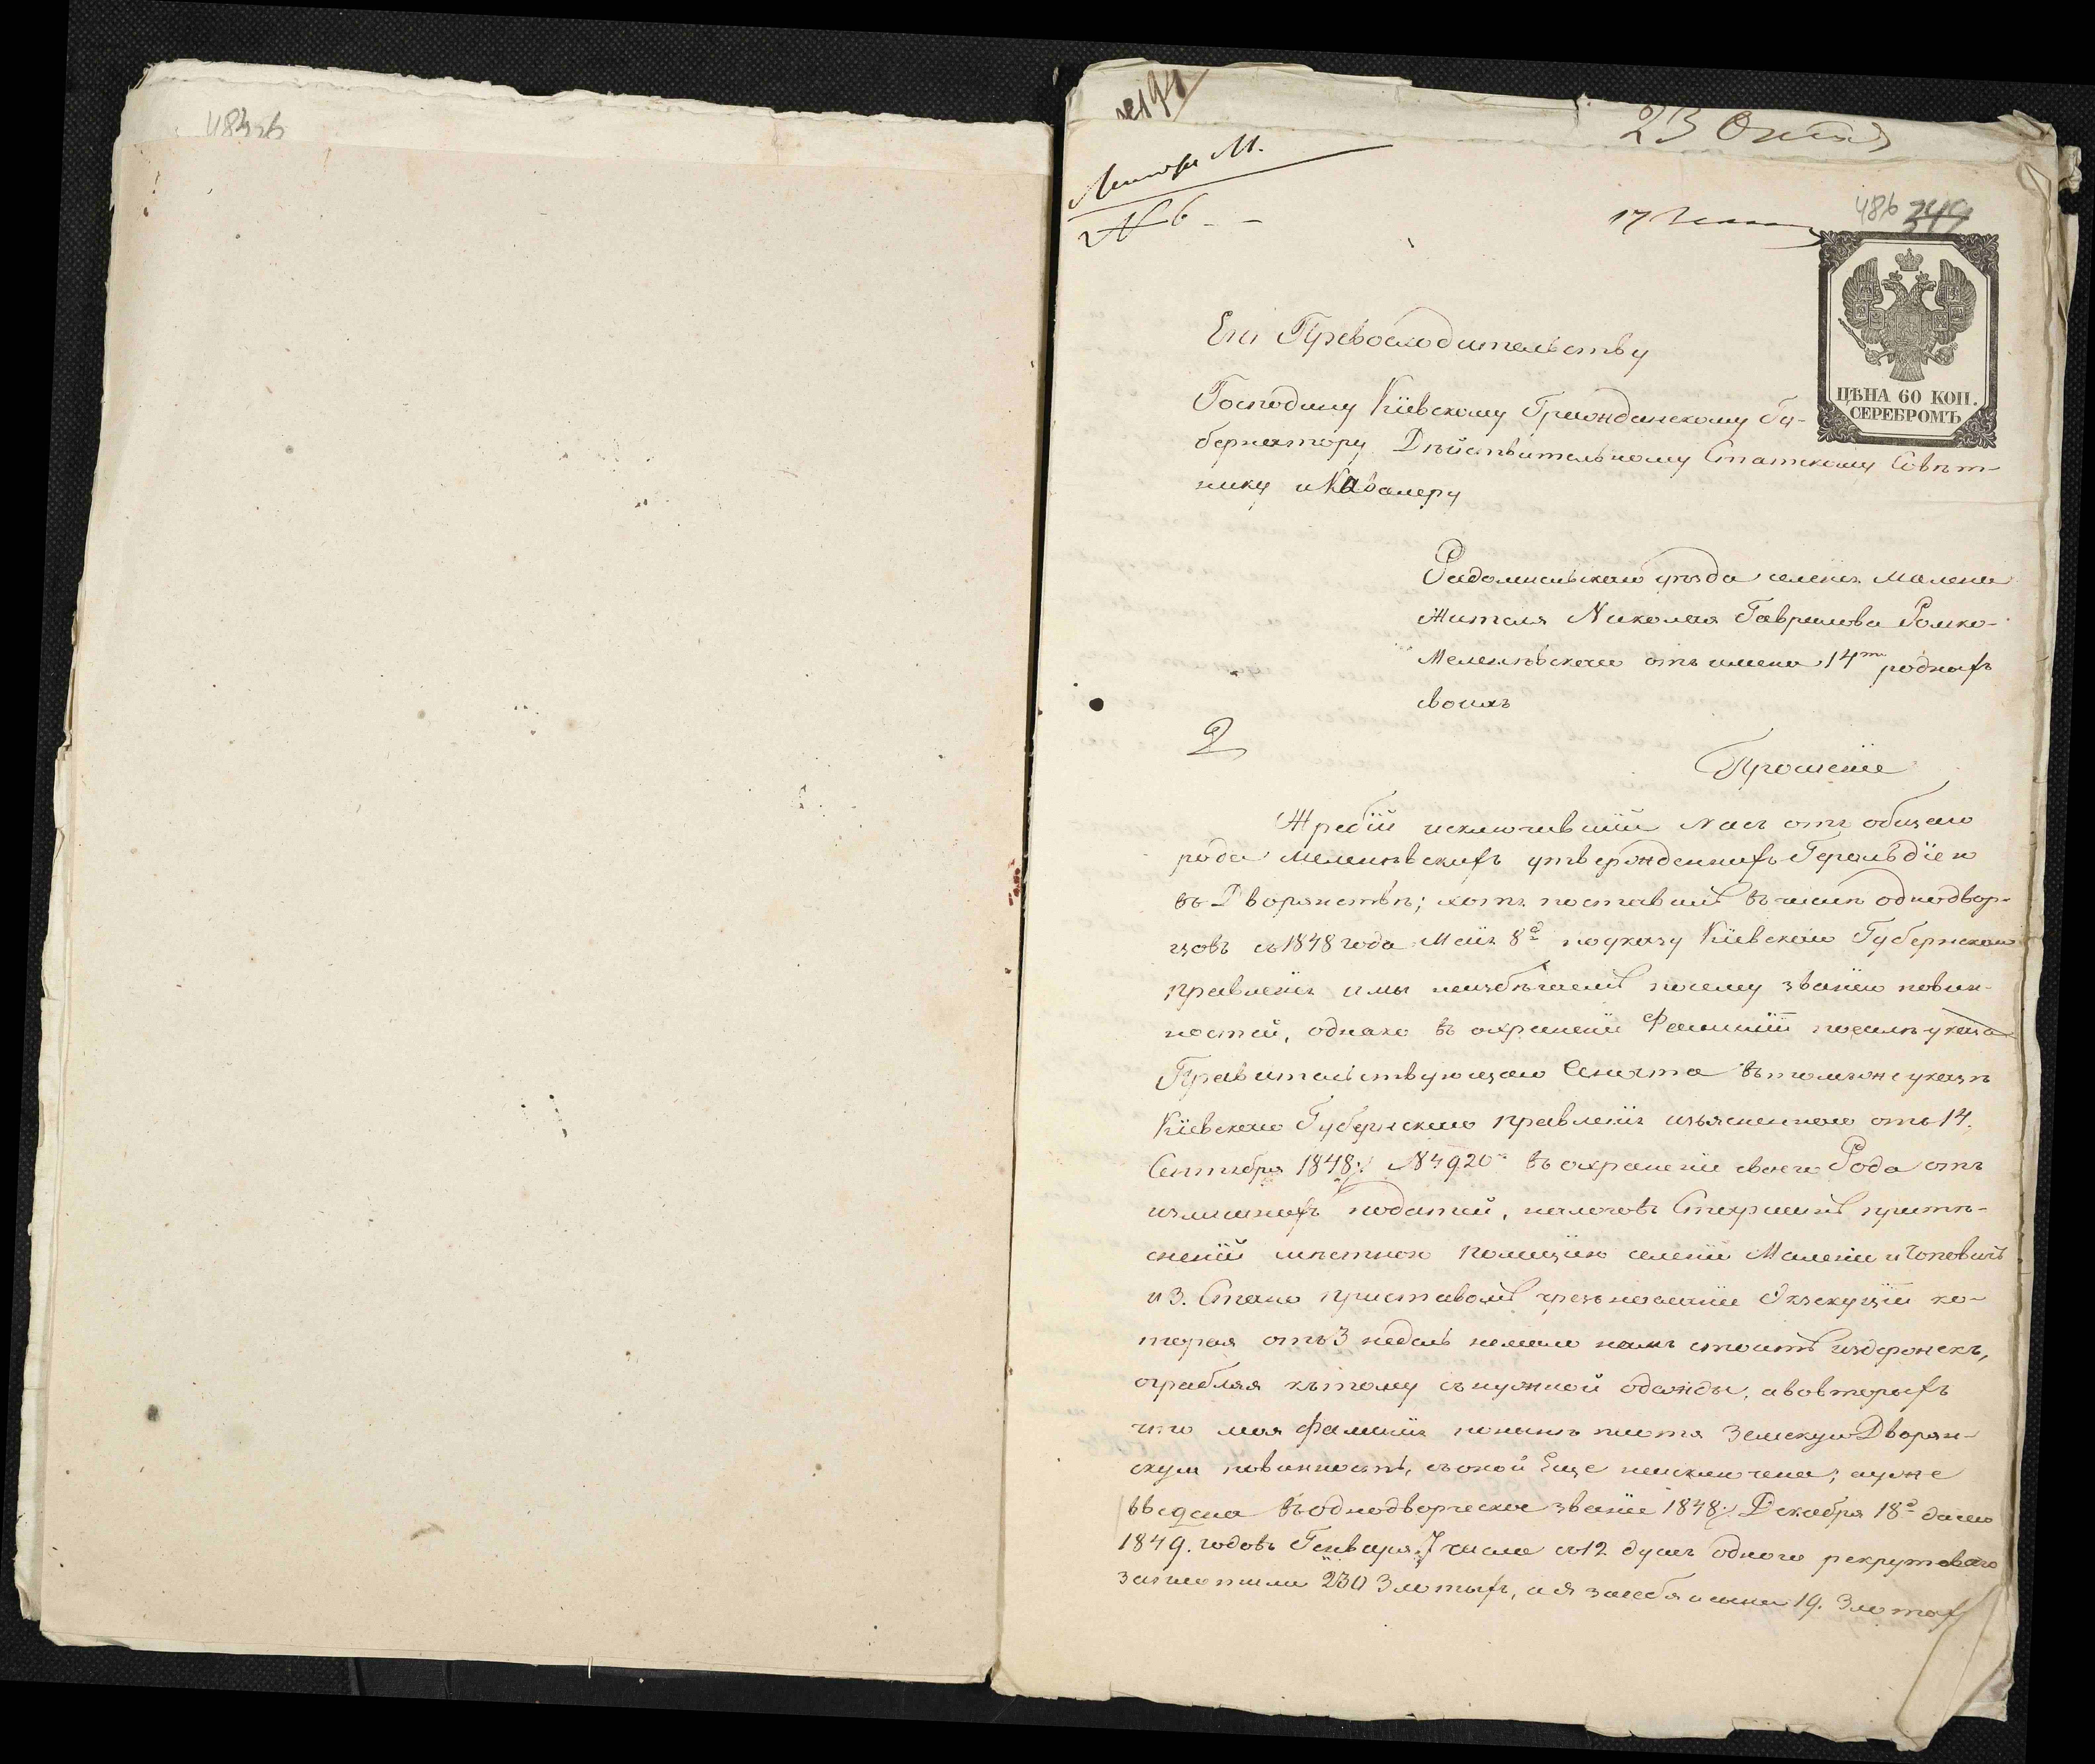 23 Октя
486 349
ЦѢНА 60 КОП.
СЕРЕБРОМЪ
Его Превосходительству
Господину Кіевскому Гражданскому Гу-
бернатору Дѣйствительному Статскому Совѣт-
нику и Кавалеру
Радомысльскаго уѣзда селенія Малена
жителя Николая Гаврилова Ромко-
Меленѣвскаго отъ имени 14ти родныхъ
своихъ
Прошеніе
Жребій исключившій насъ отъ общаго
рода Меленѣвскихъ утвержденныхъ Геральдіею
въ Дворянствѣ; хотя поставилъ въ числѣ однодвор-
цовъ съ 1848 года Маія 8го по указу Кіевскаго Губернскаго
правленія и мы неизбѣгаемъ по сему званію повин-
ностей, однако въ охраненіи Фамиліи по силѣ указа
Правительствующаго Сената въ томъ же указѣ
Кіевскаго Губернскаго правленія изъясненнаго отъ 14.
Сентября 1848. № 84920 въ охраненіе своего Рода отъ
излишнихъ податей, налоговъ Старшинъ притѣ-
сненій мѣстною полиціею селеній Малена и Чоповичъ
и 3. Стана приставомъ чрезъ насланіе Экзекуціи ко-
торая отъ 3 недель немало намъ стоитъ издержекъ,
ограбляя къ тому съ нужной одежды, а вовторыхъ
что моя Фамилія понынѣ платя Земскую Дворян-
скую повинность, съ оной Еще неисключена, а уже
введена въ однодворческое званіе 1848. Декабря 18го дано
1849. годовъ Генваря 7 числа съ 12 душъ одного рекрутоваго
заплотили 230 Злотыхъ, а я за себя и сына 19. Злотыхъ